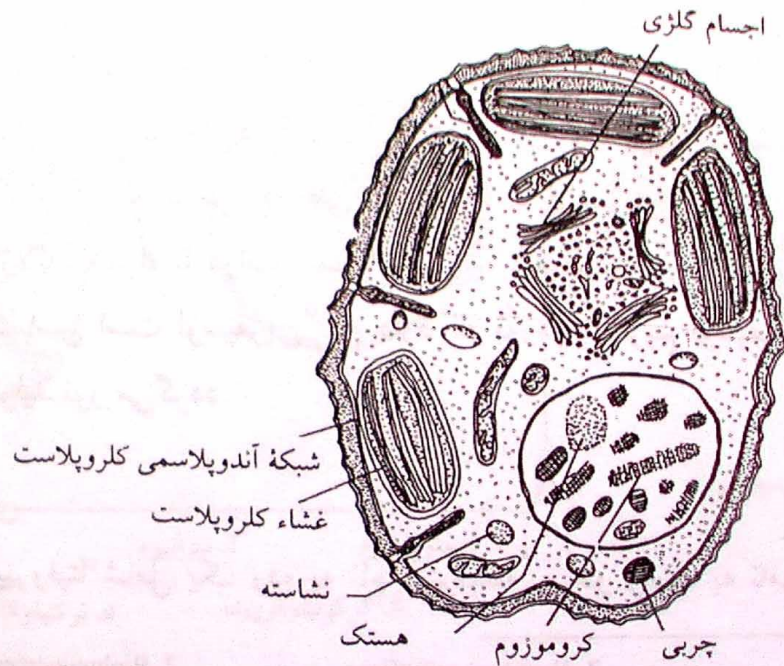 اجسام گلژی
شبکهٔ آندوپلاسمی کلروپلاست
غشاء کلروپلاست
نشاسته
هستک
کروموزوم
چربی